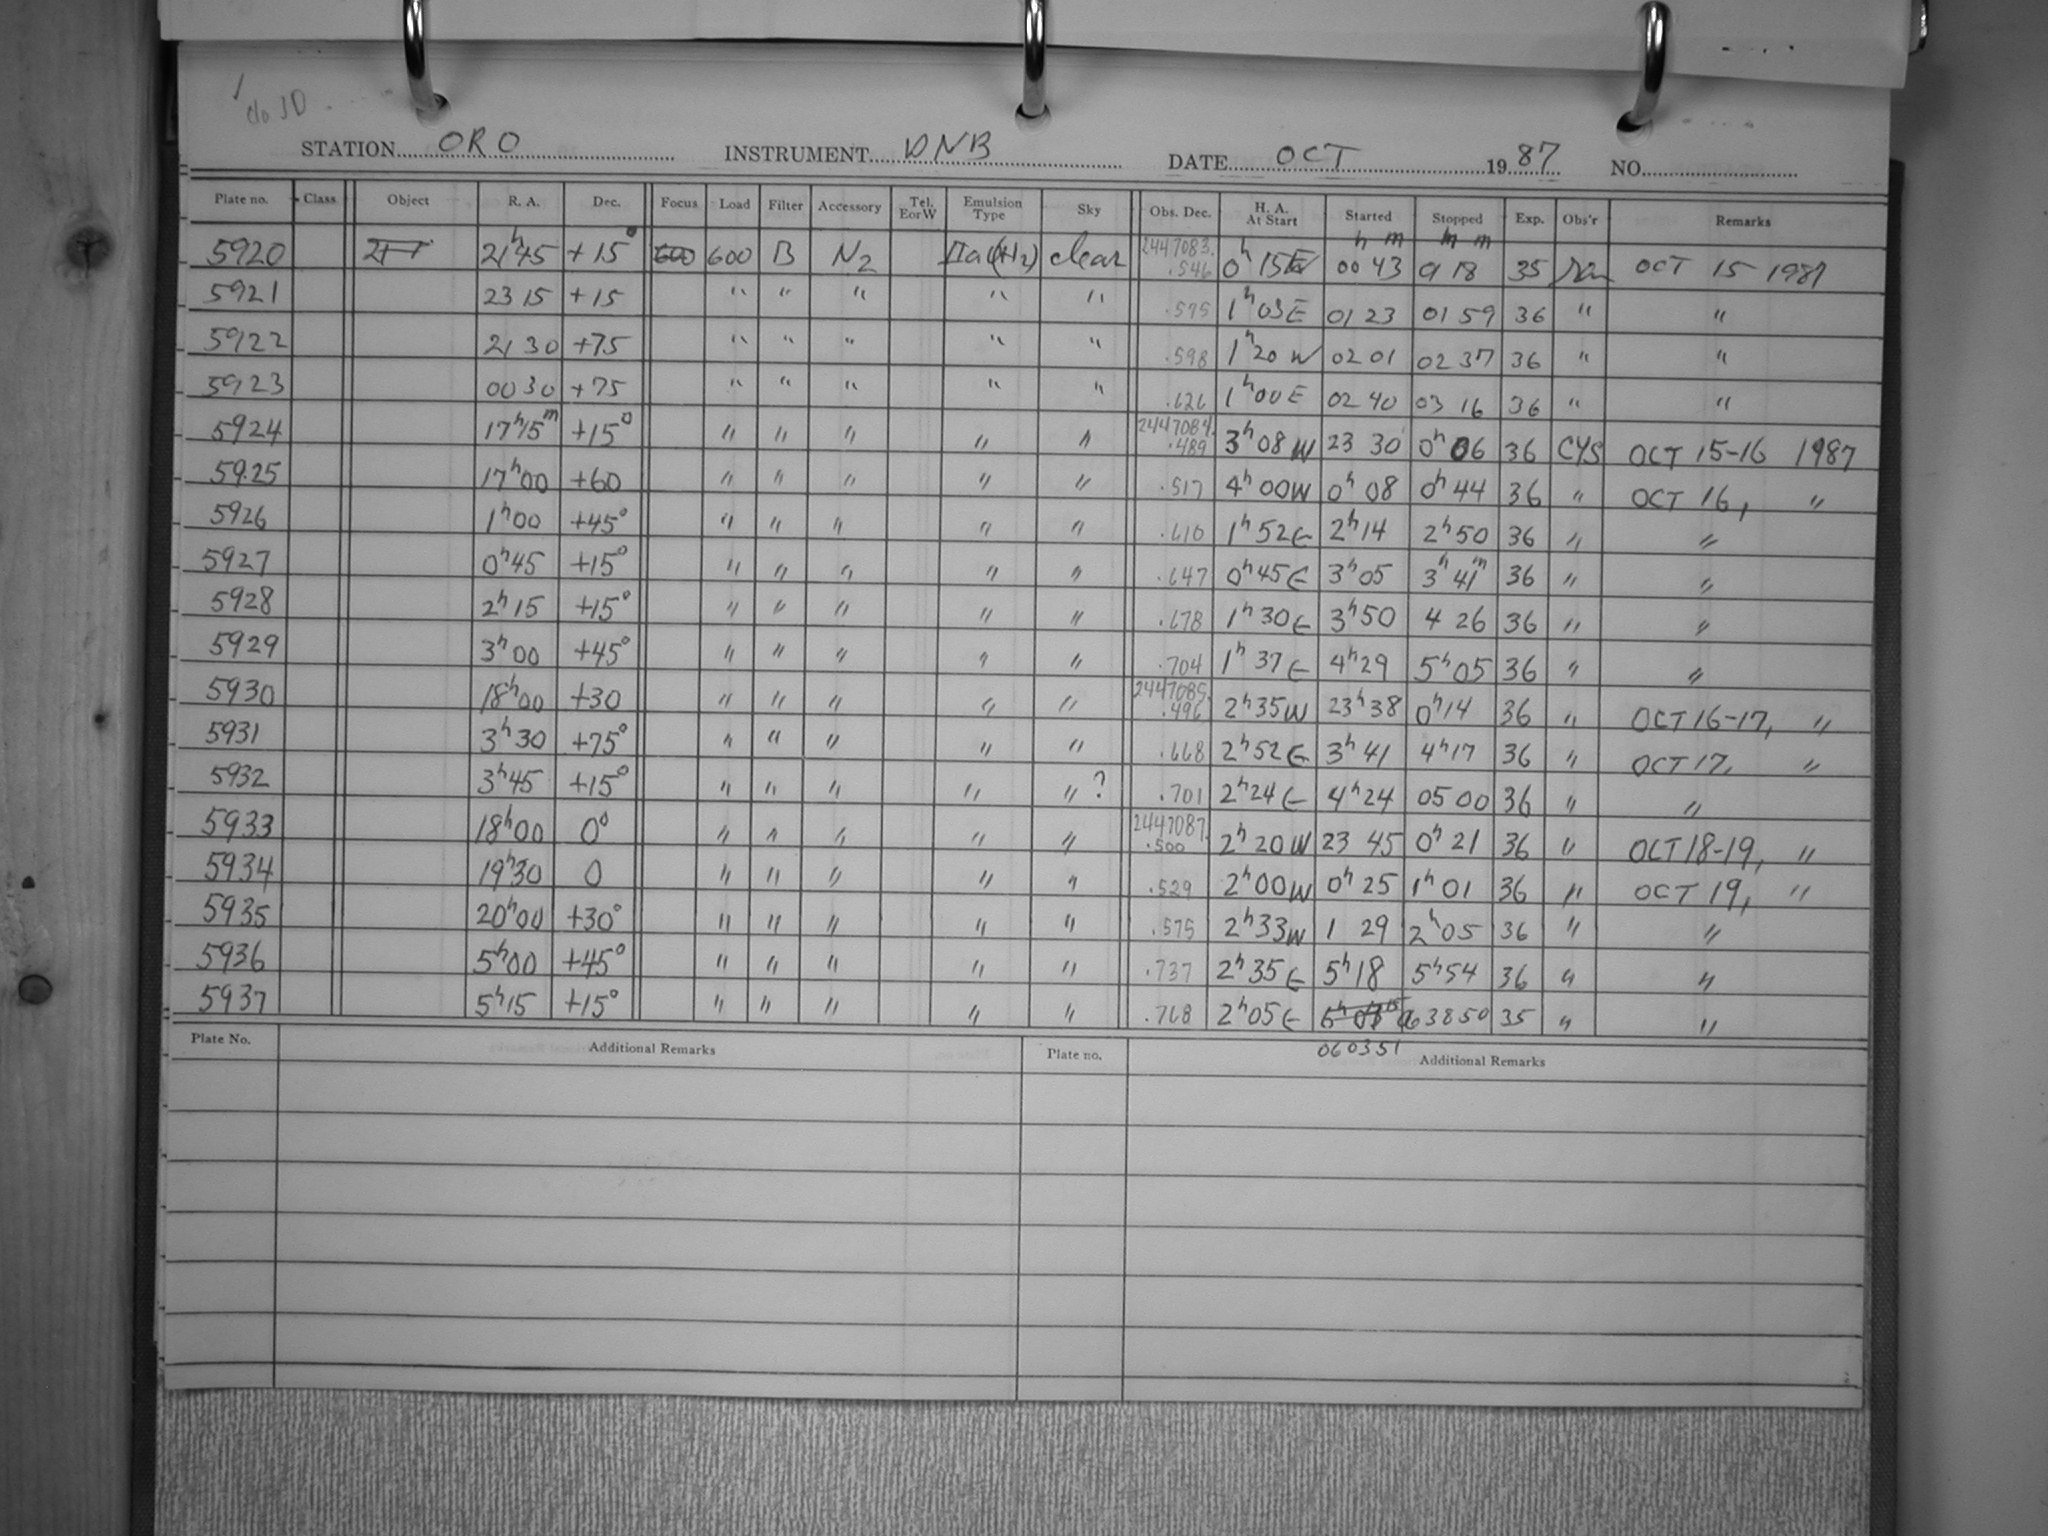 do JD
STATION ORO INSTRUMENT DNB DATE OCT 1987 NO.
Plate no. Class Object R. A. Dec. Focus Load Filter Accessory Tel. EorW Emulsion Type Sky Obs. Dec. H. A. At Start Started Stopped Exp. Obs'r Remarks
h m h m
5920 21h45 +15° 600 600 B N2 IIa(H2) clear 2447083. .546 0h 15 W 00 43 01 18 35 OCT 15 1987
5921 23 15 +15 " " " " " .575 1h 03 E 01 23 01 59 36 " "
5922 21 30 +75 " " " " " .598 1h 20 W 02 01 02 37 36 " "
5923 00 30 +75 " " " " " .626 1h 00 E 02 40 03 16 36 " "
5924 17h15m +15° " " " " " 2447084. .489 3h 08 W 23 30 0h 06 36 CYS OCT 15-16 1987
5925 17h00 +60 " " " " " .517 4h 00W 0h 08 0h 44 36 " OCT 16, "
5926 1h00 +45° " " " " " .610 1h 52E 2h14 2h50 36 " "
5927 0h45 +15° " " " " " .647 0h45E 3h05 3h 41m 36 " "
5928 2h15 +15° " " " " " .678 1h 30E 3h50 4 26 36 " "
5929 3h00 +45° " " " " " .704 1h 37E 4h29 5h05 36 " "
5930 18h00 +30 " " " " " 2447085. .496 2h35W 23h38 0h14 36 " OCT 16-17, "
5931 3h30 +75° " " " " " .668 2h52E 3h41 4h17 36 " OCT 17, "
5932 3h45 +15° " " " " " ? .701 2h24E 4h24 05 00 36 " "
5933 18h00 0° " " " " " 2447087. .500 2h20W 23 45 0h 21 36 " OCT 18-19, "
5934 19h30 0 " " " " " .529 2h00W 0h 25 1h 01 36 " OCT 19, "
5935 20h00 +30° " " " " " .575 2h33W 1 29 2h05 36 " "
5936 5h00 +45° " " " " " .737 2h35E 5h18 5h54 36 " "
5937 5h15 +15° " " " " " .768 2h05E 063850 35 " "
060351
Plate No. Additional Remarks Plate no. Additional Remarks